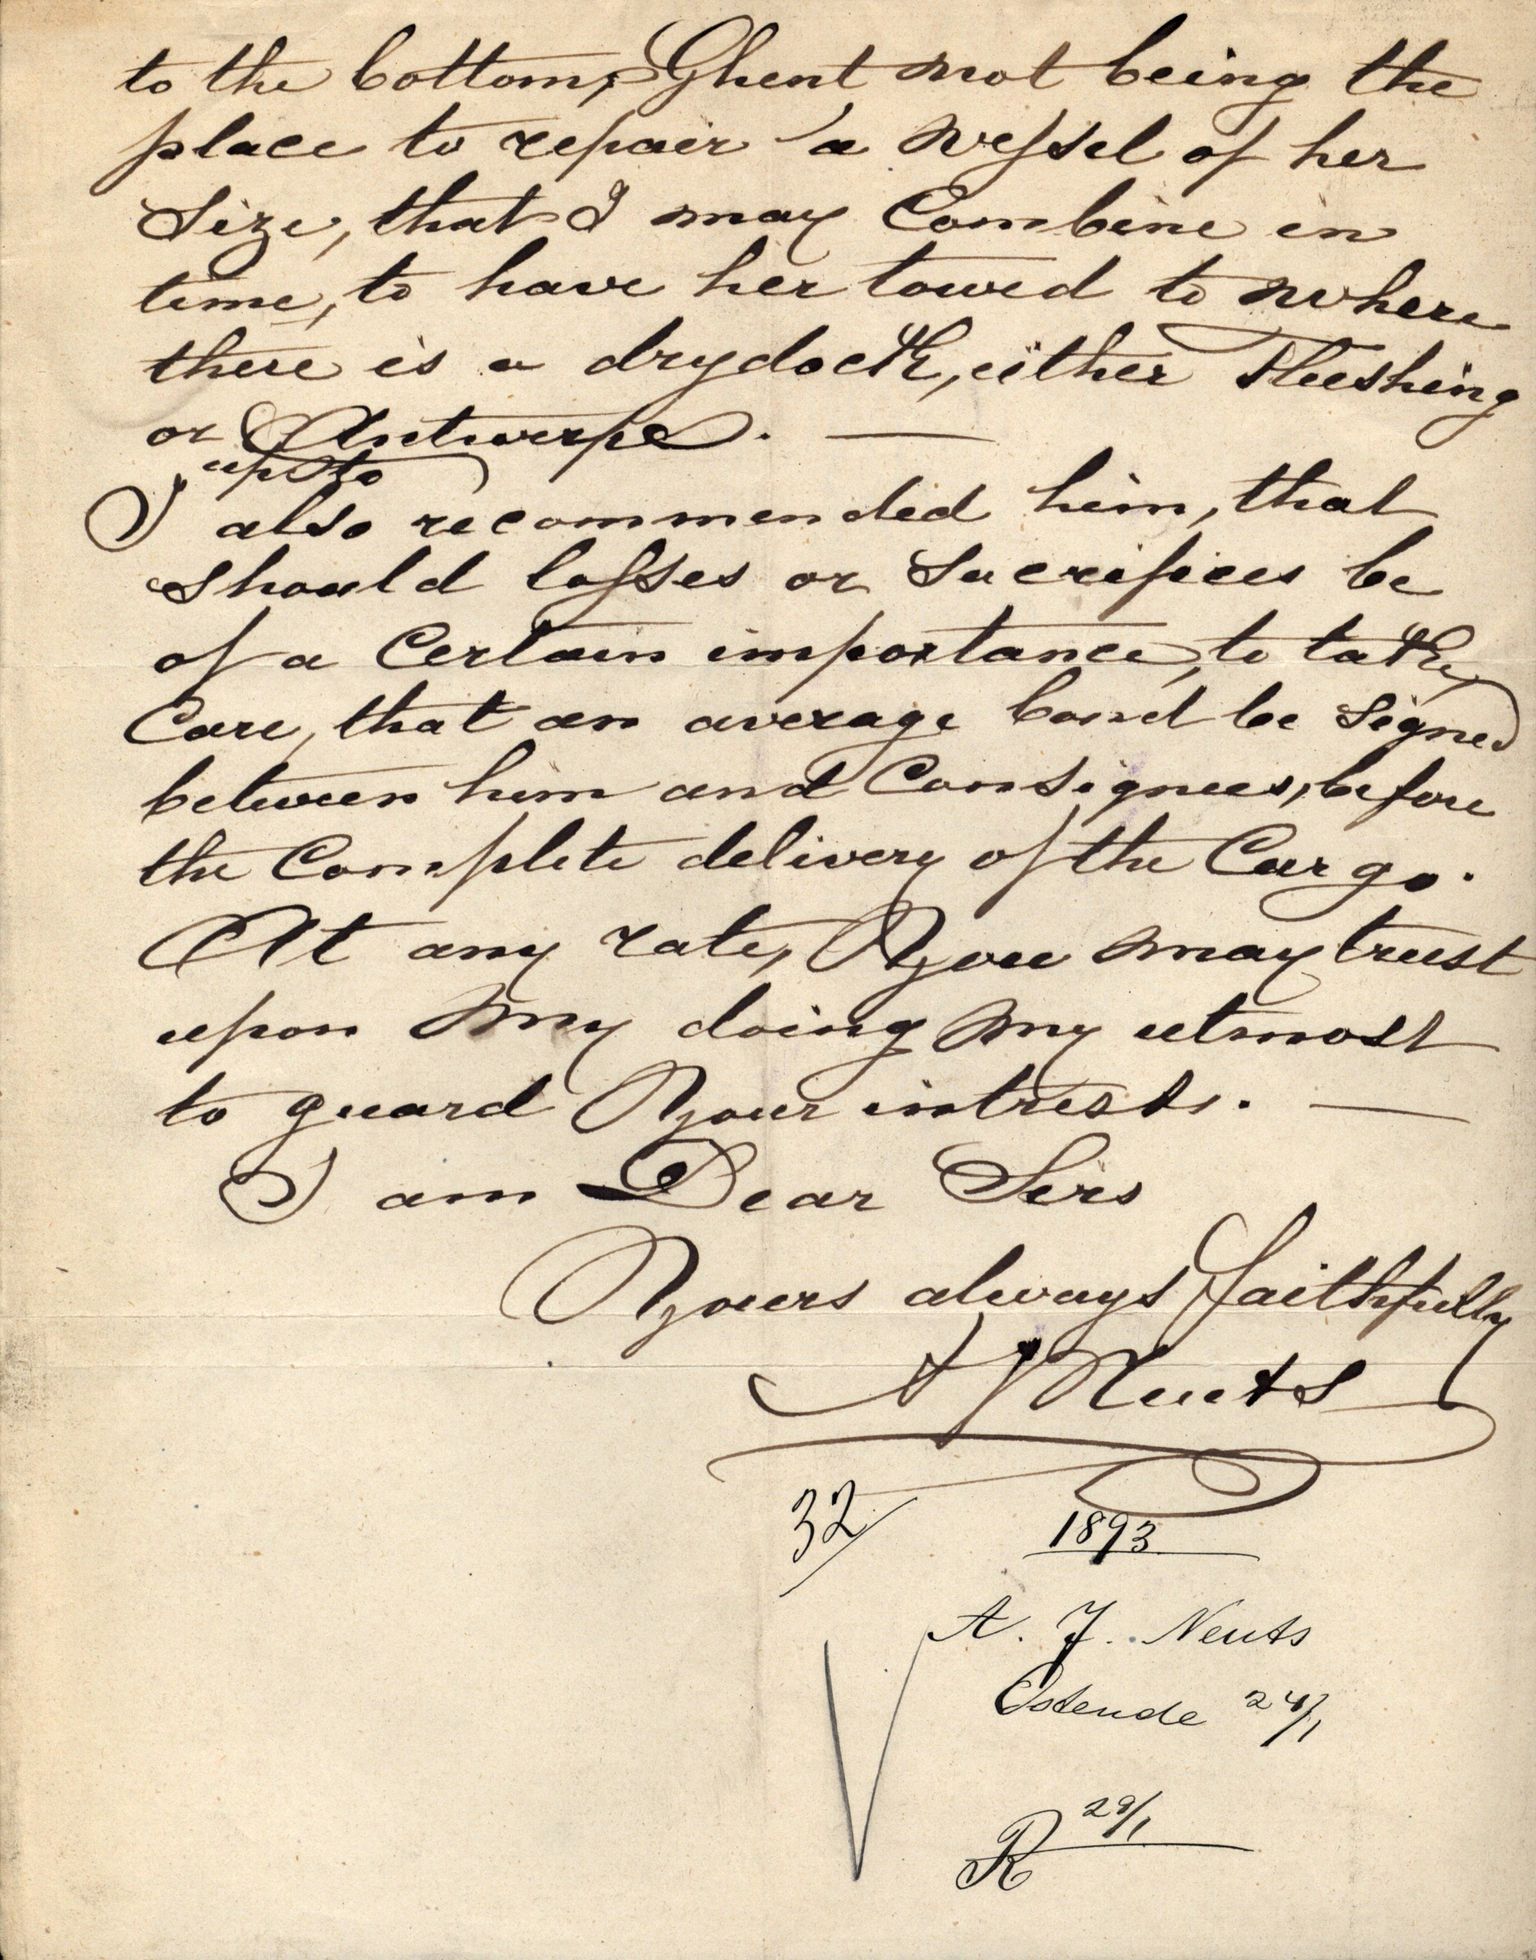 to the bottom, Ghent not being the
place to repair a vessel of her
Size, that I may Combine in
time, to have her towed to where
there is a drydock, either Fleshing
or Antwerpe. —
up to
I also recommended him, that
should losses or Sacrifices be
of a Certain importance, to take
Care, that an average bond be Signed
between him and Consignees, before
the Complete delivery of the Cargo.
At any rate, You may trust
upon my doing my utmost
to guard Your intrests. —
I am Dear Sirs
Yours always faithfully
A J Neuts
32/
1893
A. J. Neuts
Ostende 24/1
R 29/1